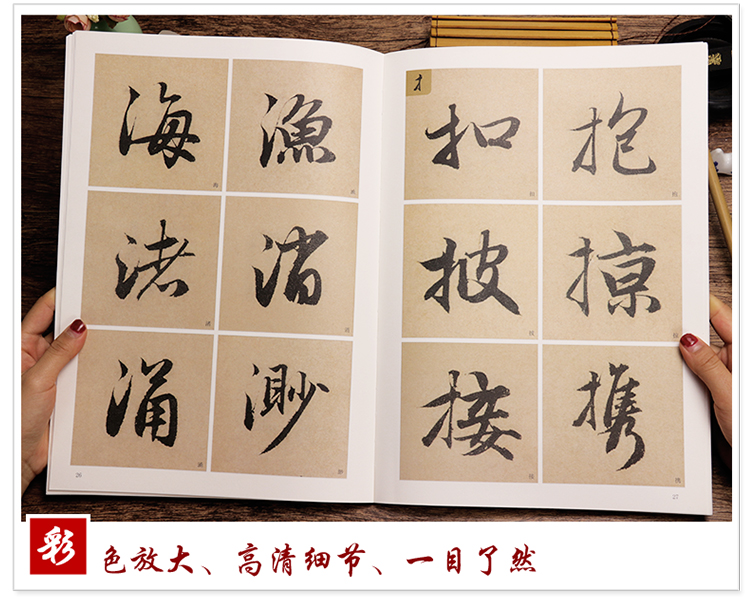 海 漁
渚 消
涌 渺
26
扌
扣 抱
披 掠
接 携
27
彩
色放大、高清细节、一目了然